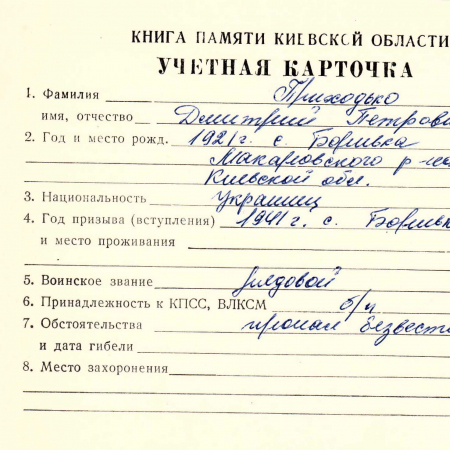 КНИГА ПАМЯТИ КИЕВСКОЙ ОБЛАСТИ
УЧЕТНАЯ КАРТОЧКА
1. Фамилия Приходько
имя, отчество Дмитрий Петрови
2. Год и место рожд. 1921 г. с.
Макаровского р-на
Киевской обл.
3. Национальность украинец
4. Год призыва (вступления) 1941 г. с.
и место проживания
5. Воинское звание рядовой
6. Принадлежность к КПСС, ВЛКСМ б/п
7. Обстоятельства пропал безвест
и дата гибели
8. Место захоронения